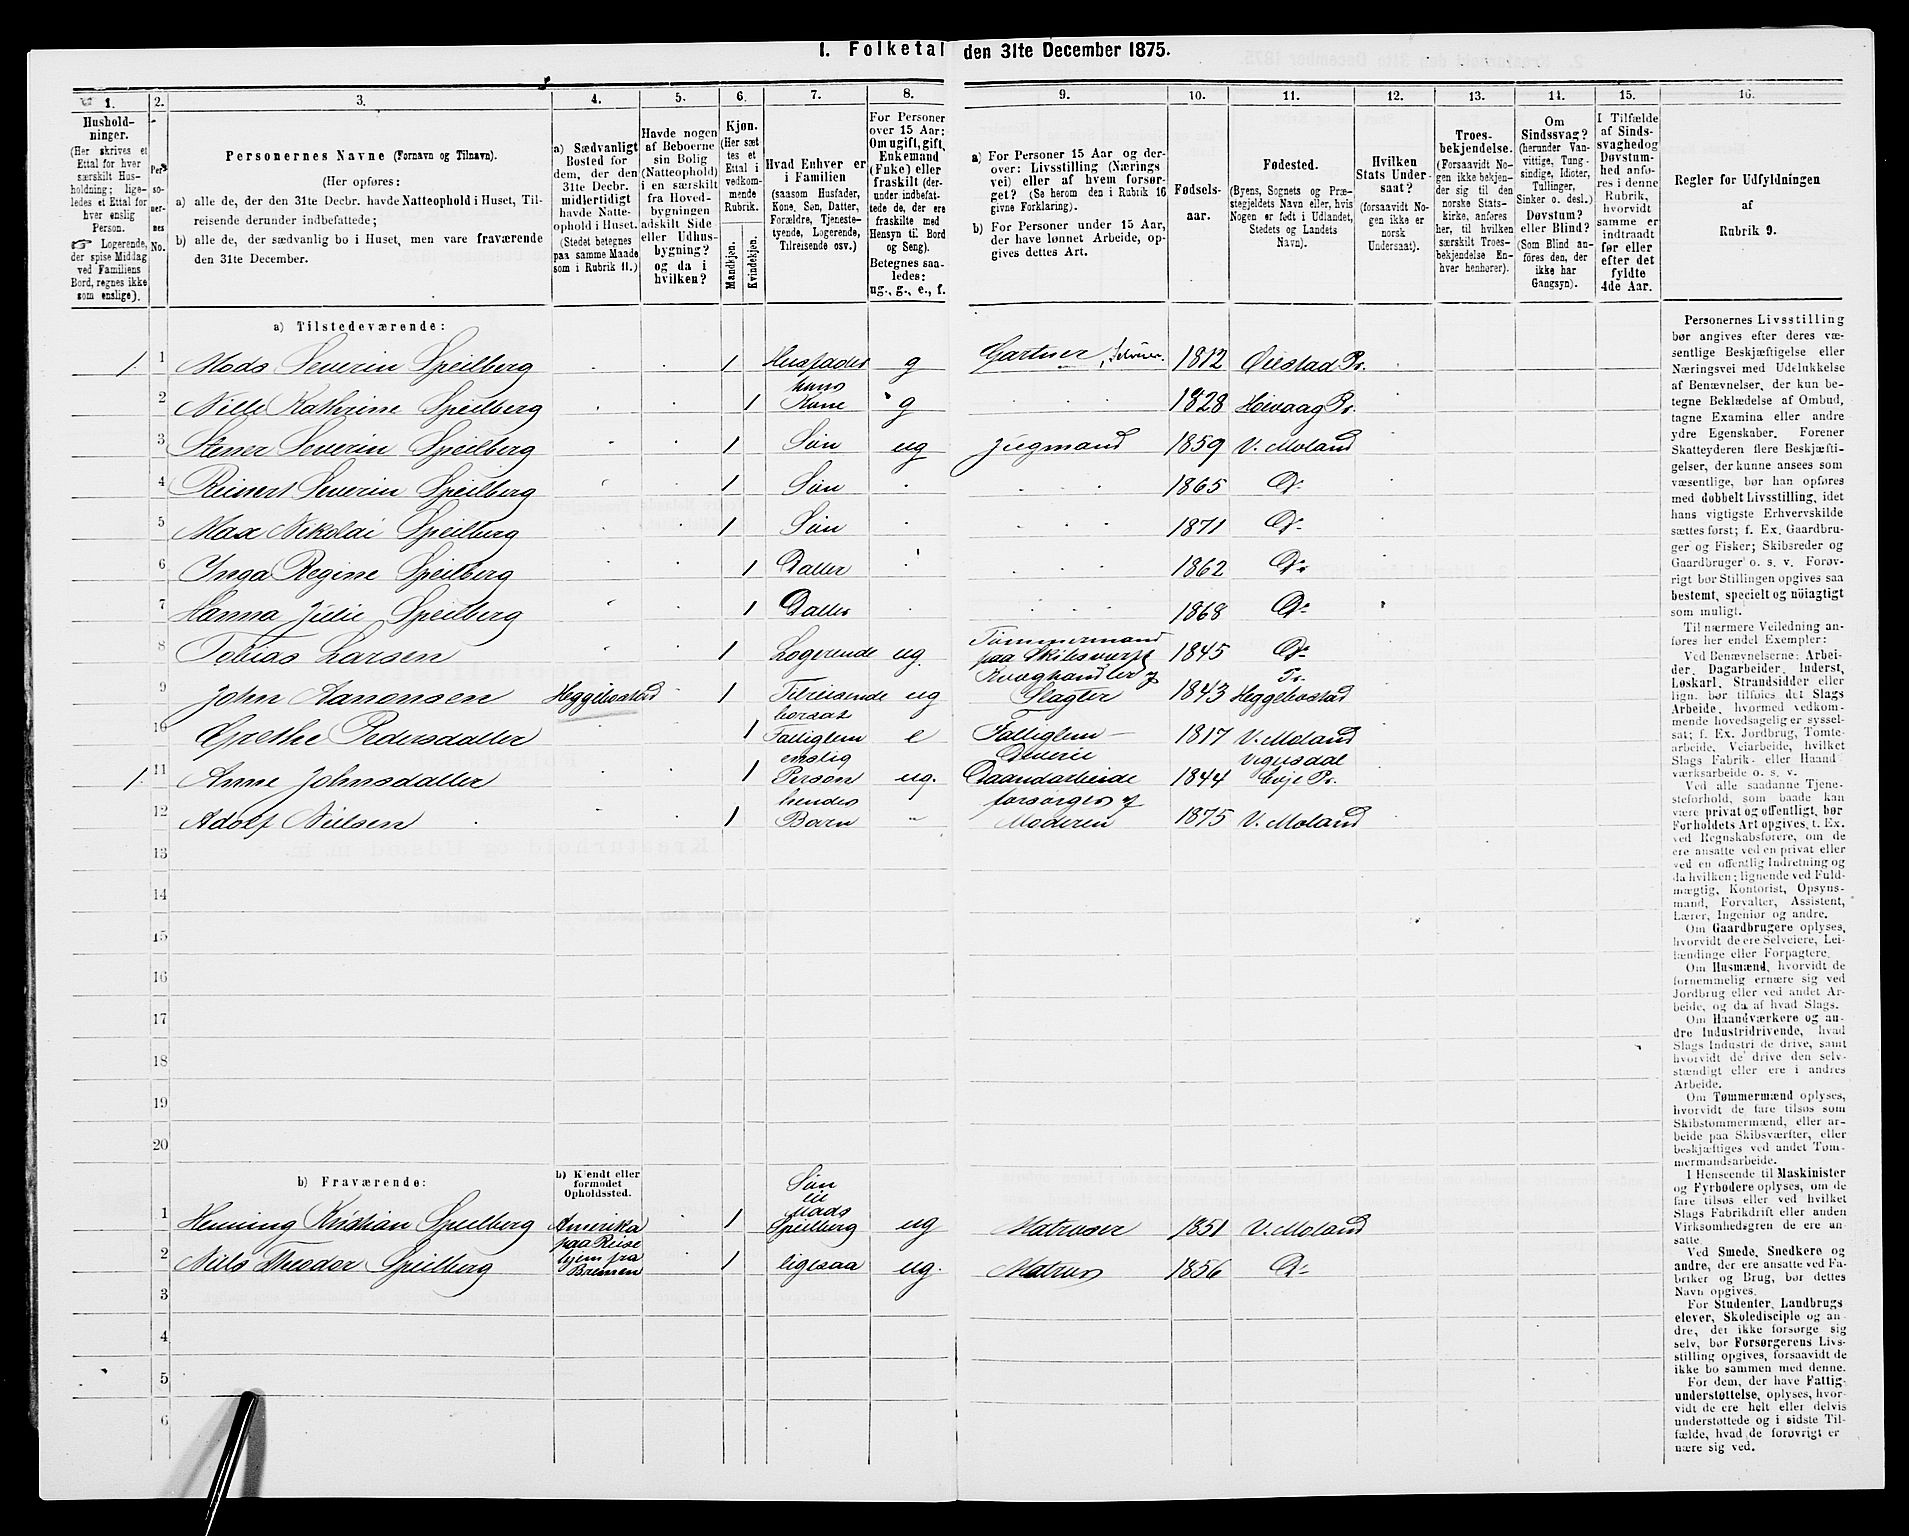 I. Folketal den 31te December 1875.
1. 2. 3. 4. 5. 6. 7. 8. 9. 10. 11. 12. 13. 14. 15. 16.
Husholdninger.
(Her skrives et Ettal for hver særskilt Husholdning; ligeledes et Ettal for hver enslig Person.
☞ Logerende, der spise Middag ved Familiens Bord, regnes ikke som enslige).
Personernes No.
Personernes Navne (Fornavn og Tilnavn).
(Her opføres:
a) alle de, der den 31te Decbr. havde Natteophold i Huset, Tilreisende derunder indbefattede;
b) alle de, der sædvanlig bo i Huset, men vare fraværende den 31te December.
a) Sædvanligt Bosted for dem, der den 31te Decbr. midlertidigt havde Natteophold i Huset.
(Stedet betegnes paa samme Maade som i Rubrik 11.)
Havde nogen af Beboerne sin Bolig (Natteophold) i en særskilt fra Hovedbygningen adskilt Side eller Udhusbygning? og da i hvilken?
Kjøn.
(Her sættes et Ettal i vedkommende Rubrik.
Mandkjøn.
Kvindekjøn.
Hvad Enhver er i Familien
(saasom Husfader, Kone, Søn, Datter, Forældre, Tjenestetyende, Logerende, Tilreisende osv.)
For Personer over 15 Aar: Om ugift, gift, Enkemand (Enke) eller fraskilt (derunder indbefattede de, der ere fraskilte med Hensyn til Bord og Seng).
Betegnes saaledes:
ug., g., e., f.
a) For Personer 15 Aar og derover: Livsstilling (Næringsvei) eller af hvem forsørget? (Se herom den i Rubrik 16 givne Forklaring).
b) For Personer under 15 Aar, der have lønnet Arbeide, opgives dettes Art.
Fødselsaar.
Fødested.
(Byens, Sognets og Præstegjeldets Navn eller, hvis Nogen er født i Udlandet, Stedets og Landets Navn).
Hvilken Stats Undersaat?
(forsaavidt Nogen ikke er norsk Undersaat).
Troesbekjendelse.
(Forsaavidt Nogen ikke bekjender sig til den norske Statskirke, anføres her, til hvilken særskilt Troesbekjendelse Enhver henhører).
Om Sindssvag? (herunder Vanvittige, Tungsindige, Idioter, Tullinger, Sinker o. desl.) Døvstum? eller Blind? (Som Blind anføres den, der ikke har Gangsyn).
I Tilfælde af Sindssvaghed og Døvstumhed anføres i denne Rubrik, hvorvidt samme er indtraadt før eller efter det fyldte 4de Aar.
Regler for Udfyldningen af Rubrik 9.
a) Tilstedeværende:
1 1 Mads Severin Speilberg 1 Husfader g Gartner, 1812 Øiestad Pr.
2 Nille Kathrine Speilberg 1 hans Kone g 1828 Høivaag Pr.
3 Stener Severin Speilberg 1 Søn ug Jugmand 1859 V. Moland
4 Reinert Severin Speilberg 1 Søn 1865 Do
5 Max Nikolai Speilberg 1 Søn 1871 Do
6 Inga Regine Speilberg 1 Datter 1862 Do
7 Hanna Julie Speilberg 1 Datter 1868 Do
8 Tobias Larsen 1 Logerende ug. Tømmermand paa Skibsverft 1845 Do
9 John Aanonsen Heggebostad 1 Tilreisende ug Kvæghandler og Slagter 1843 Heggebostad Pr.
10 Grethe Pedersdatter 1 borsat Fattiglem e Fattiglem 1817 V. Moland
1 11 Anne Johnsdatter 1 enslig Person ug. Diverse Haandarbeide 1844 Vegusdal Evje Pr.
12 Adolf Nielsen 1 hendes Barn " forsørges af Moderen 1875 V. Moland
13
14
15
16
17
18
19
20
b) Fraværende:
b) Kjendt eller formodet Opholdssted.
1 Henning Kristian Speilberg Amerika 1 Søn til Mads Speilberg ug Matroser 1851 V. Moland
2 Niels Theodor Speilberg paa Reise hjem fra Bremen 1 ligesaa ug. Matros 1856 Do
3
4
5
6
Personernes Livsstilling bør angives efter deres væsentlige Beskjæftigelse eller Næringsvei med Udelukkelse af Benævnelser, der kun betegne Beklædelse af Ombud, tagne Examina eller andre ydre Egenskaber. Forener Skatteyderen flere Beskjæftigelser, der kunne ansees som væsentlige, bør han opføres med dobbelt Livsstilling, idet hans vigtigste Erhvervskilde sættes først; f. Ex. Gaardbruger og Fisker; Skibsreder og Gaardbruger o. s. v. Forøvrigt bør Stillingen opgives saa bestemt, specielt og nöiagtigt som muligt.
Til nærmere Veiledning anføres her endel Exempler:
Ved Benævnelserne: Arbeider, Dagarbeider, Inderst, Løskarl, Strandsidder eller lign. bør tilføies det Slags Arbeide, hvormed vedkommende hovedsagelig er sysselsat; f. Ex. Jordbrug, Tomtearbeide, Veiarbeide, hvilket Slags Fabrik- eller Haandværksarbeide o. s. v.
Ved alle saadanne Tjenesteforhold, som baade kan være privat og offentligt, bør Forholdets Art opgives, t. Ex. ved Regnskabsførere, om de ere ansatte ved en privat eller ved en offentlig Indretning og da hvilken; lignende ved Fuldmægtig, Kontorist, Opsynsmand, Forvalter, Assistent, Lærer, Ingeniør og andre.
Om Gaardbrugere oplyses, hvorvidt de ere Selveiere, Leilændinge eller Forpagtere.
Om Husmænd, hvorvidt de fornemmelig ernære sig ved Jordbrug eller ved andet Arbeide, og da af hvad Slags.
Om Haandværkere og andre Industridrivende, hvad Slags Industri de drive, samt hvorvidt de drive den selvstændigt eller ere i andres Arbeide.
Om Tømmermænd oplyses, hvorvidt de fare tilsøs som Skibstømmermænd, eller arbeide paa Skibsværfter, eller beskjæftiges ved andet Tømmermandsarbeide.
I Henseende til Maskinister og Fyrbødere oplyses, om de fare tilsøs eller ved hvilket Slags Fabrikdrift eller anden Virksomhedsgren de ere ansatte.
Ved Smede, Snedkere og andre, der ere ansatte ved Fabriker og Brug, bør dettes Navn opgives.
For Studenter, Landbrugselever, Skoledisciple og andre, der ikke forsørge sig selv, bør Forsørgerens Livsstilling opgives, forsaavidt de ikke bo sammen med denne.
For dem, der have Fattigunderstøttelse, oplyses, hvorvidt de ere helt eller delvis understøttede og i sidste Tilfælde, hvad de forøvrigt ernære sig ved.